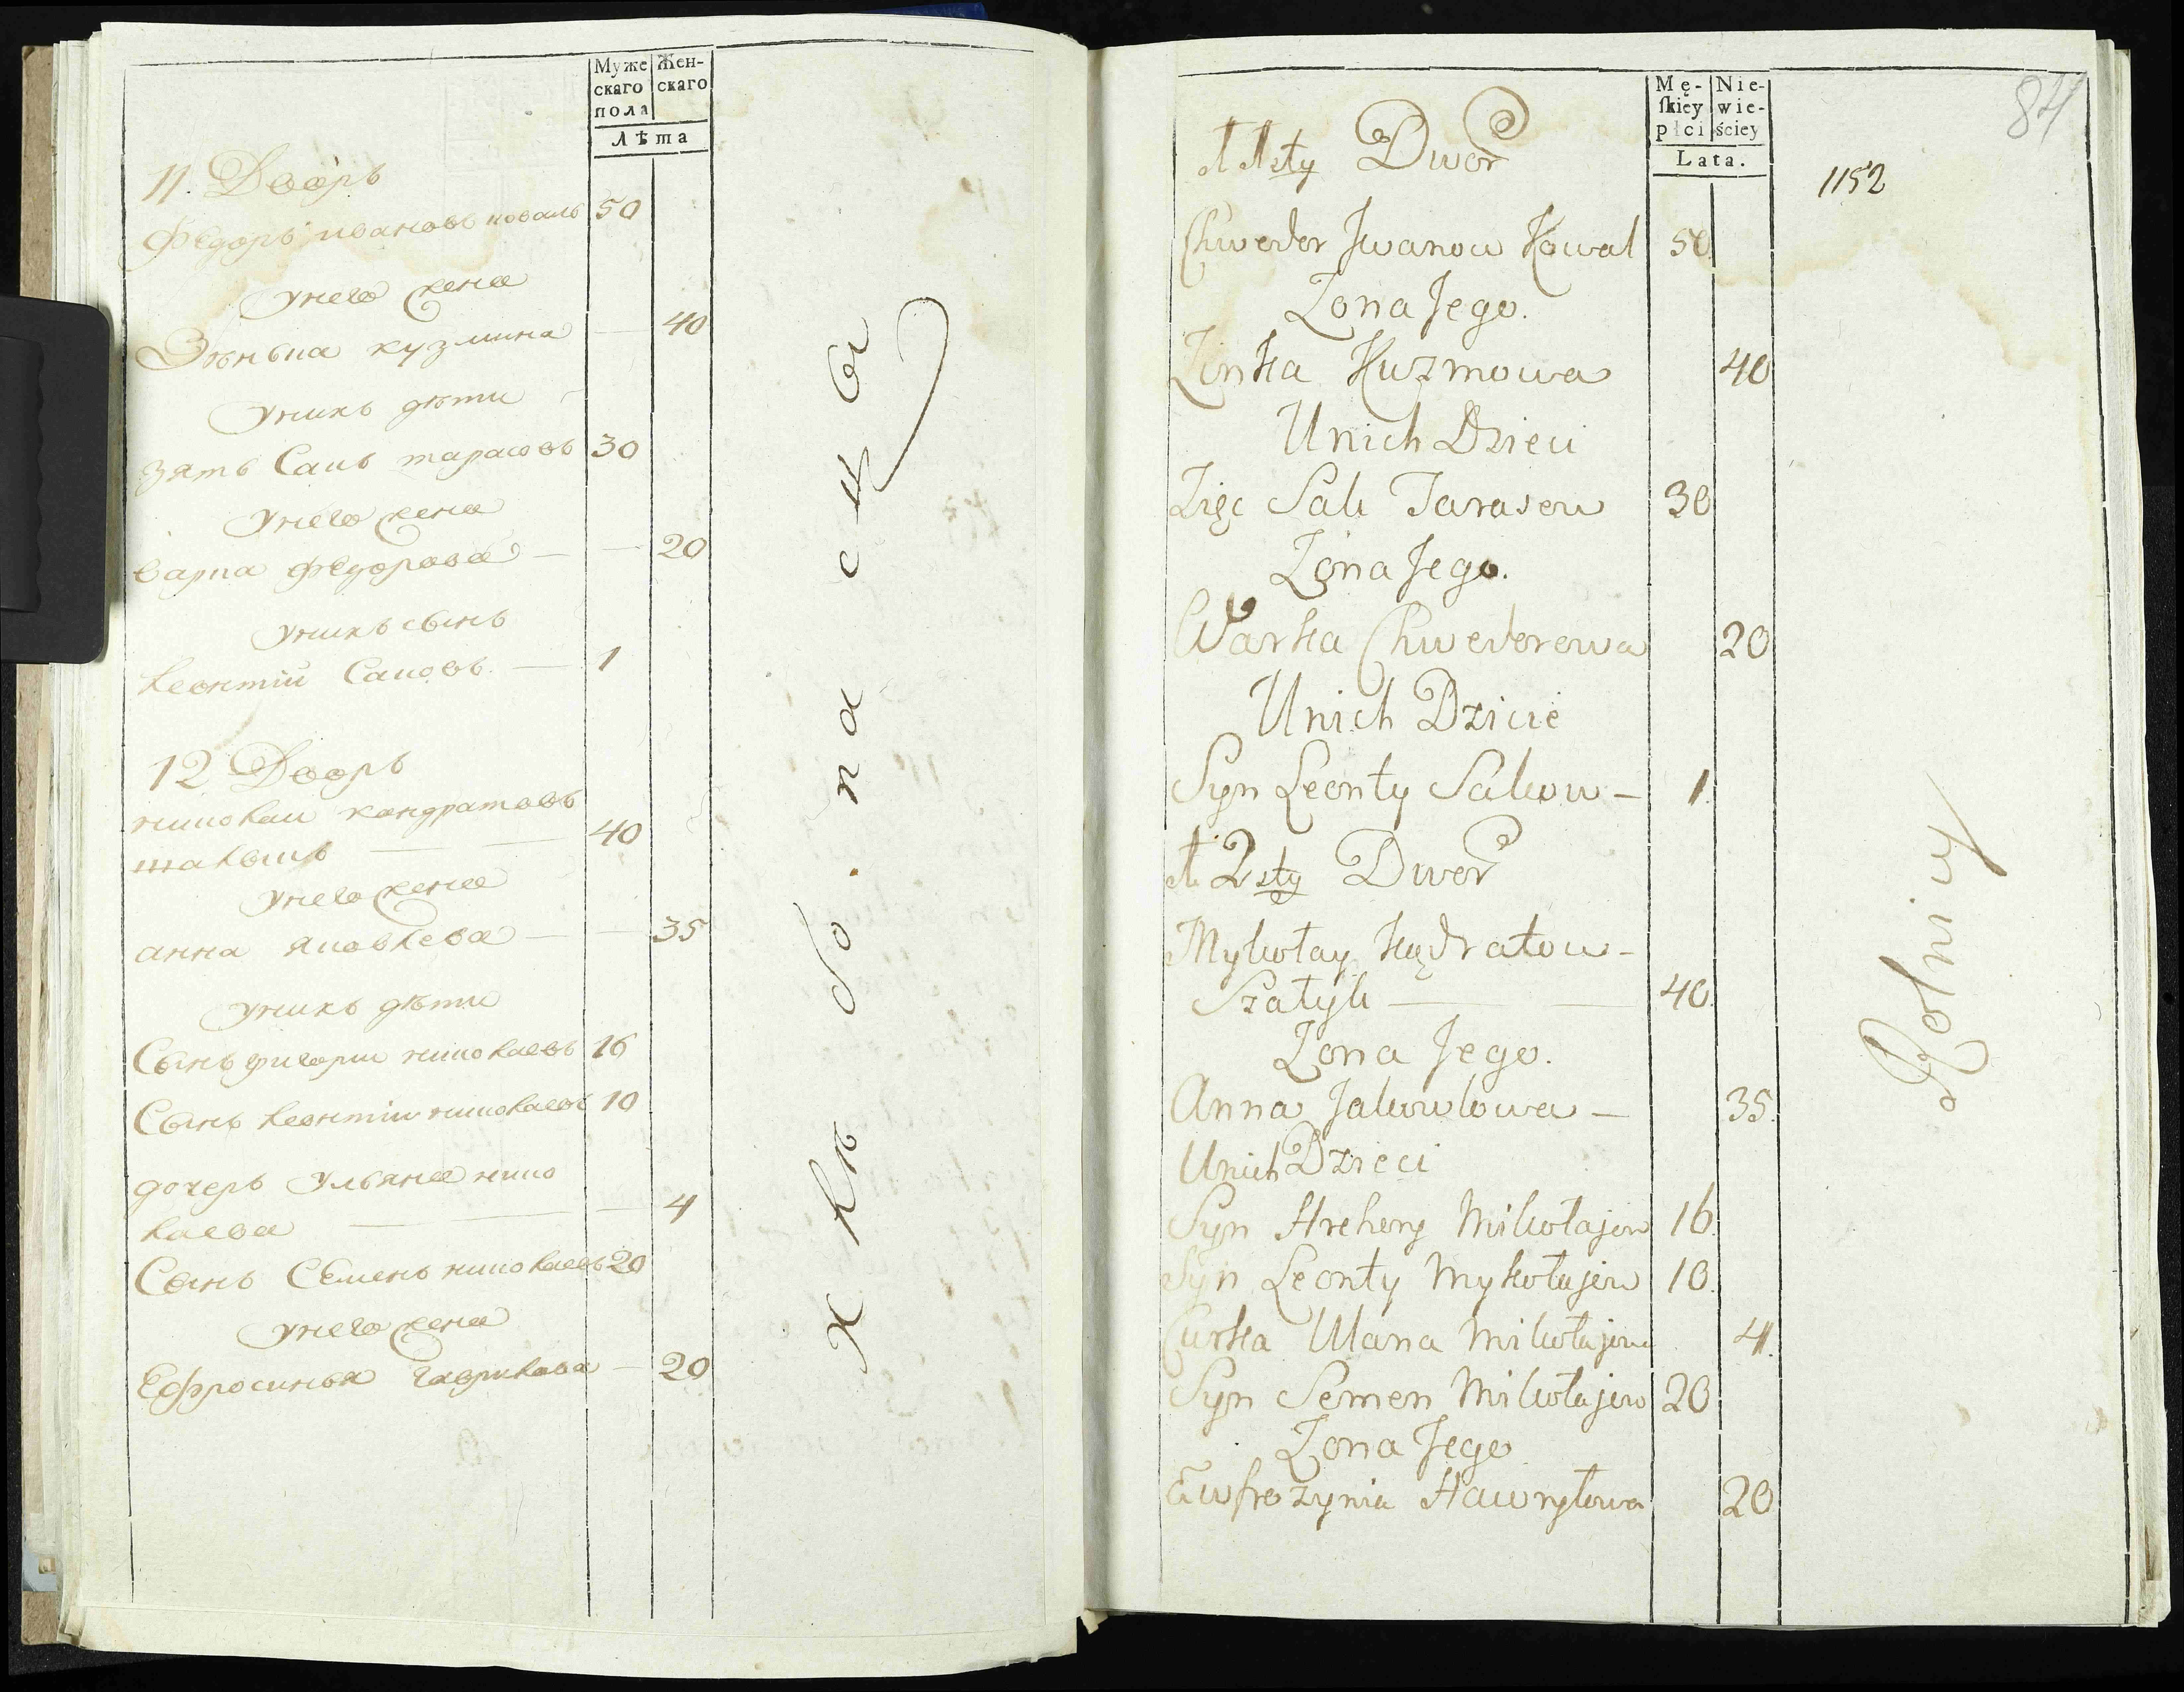 Муже
скаго
пола
Жен-
скаго
лѣта
11. Дворъ
Федоръ ивановъ коваль 50
унего жена
Зѣнька кузмина — 40
унихъ дѣти
зять Сакъ тарасовъ 30
унего жена
варка федорова — — 20
унихъ сынъ
леонтій Саковъ — 1
12 Дворъ
николаи кондратовъ
шатыкъ — — 40
унего жена
анна яковлева — — 35
унихъ дѣти
Сынъ григори николаевъ 16
Сынъ леонтіи николаевъ 10
дочеръ ульяна нико
лаева — — — 4
Сынъ Семенъ николаевъ 20
унего жена
Ефросинья гаврилова — 20
хлѣбо.пасцы
Mę-
skiey
płci
Nie-
wie-
ściey
Lata.
84
1152
11sty Dwor
Chweder Jwanow Kowal 50
Zona Jego.
Zinka Kuzmowa 40
Unich Dzieci
Zięc Sak Tarasow 30
Zona Jego.
Warka Chwederowa 20
Unich Dzicie
Syn Leonty Sakow — 1.
12sty Dwor
Mykołay Kądratow -
Szatyk — — 40.
Zona Jego.
Anna Jakowlowa — 35.
Unich Dzieci
Syn Hrehory Mikołajow 16.
Syn Leonty Mykołajow 10.
Curka Ulana Mikołajowa 4.
Syn Semen Mikołajow 20
Zona Jego
Ewfrozynia Hawryłowa 20
Rolnicy